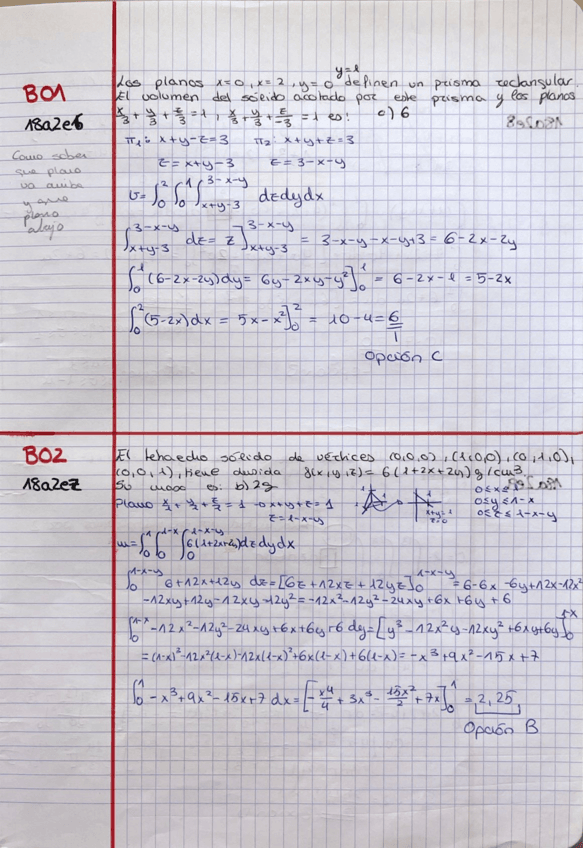 B01
18a2e6
Como saber
que plano
va arriba
y que
plano
abajo
y=1
Los planos x=0, x=2, y=0 definen un prisma rectangular.
El volumen del sólido acotado por este prisma y los planos
x/3 + y/3 + z/3 = 1, x/3 + y/3 + z/-3 = 1 es: c) 6
π₁: x+y-z=3 π₂: x+y+z=3
z=x+y-3 z=3-x-y
V=∫₀² ∫₀¹ ∫_{x+y-3}^{3-x-y} dzdydx
∫_{x+y-3}^{3-x-y} dz = z]_{x+y-3}^{3-x-y} = 3-x-y-x-y+3 = 6-2x-2y
∫₀¹ (6-2x-2y)dy = 6y-2xy-y²]₀¹ = 6-2x-1 = 5-2x
∫₀² (5-2x)dx = 5x-x²]₀² = 10-4=6
Opción C
B02
18a2e7
El tehaedro sólido de vértices (0,0,0), (1,0,0), (0,1,0),
(0,0,1), tiene δ(x,y,z)=6(1+2x+2y) g/cm3.
Su masa es: b) 2g
Plano x/1 + y/1 + z/1 = 1 → x+y+z=1
z=1-x-y
x+y=1
z=0
0≤x≤1
0≤y≤1-x
0≤z≤1-x-y
m=∫₀¹ ∫₀^{1-x} ∫₀^{1-x-y} 6(1+2x+2y)dzdydx
∫₀^{1-x-y} 6+12x+12y dz=[6z+12xz+12yz]₀^{1-x-y} = 6-6x-6y+12x-12x²
-12xy+12y-12xy-12y² = -12x²-12y²-24xy+6x+6y+6
∫₀^{1-x} -12x²-12y²-24xy+6x+6y+6 dy = [y³-12x²y-12xy²+6xy+6y]₀^{1-x}
=(1-x)³-12x²(1-x)-12x(1-x)²+6x(1-x)+6(1-x)= -x³+9x²-15x+7
∫₀¹ -x³+9x²-15x+7 dx = [-x⁴/4 + 3x³ - 15x²/2 + 7x]₀¹ = 2,25
Opción B